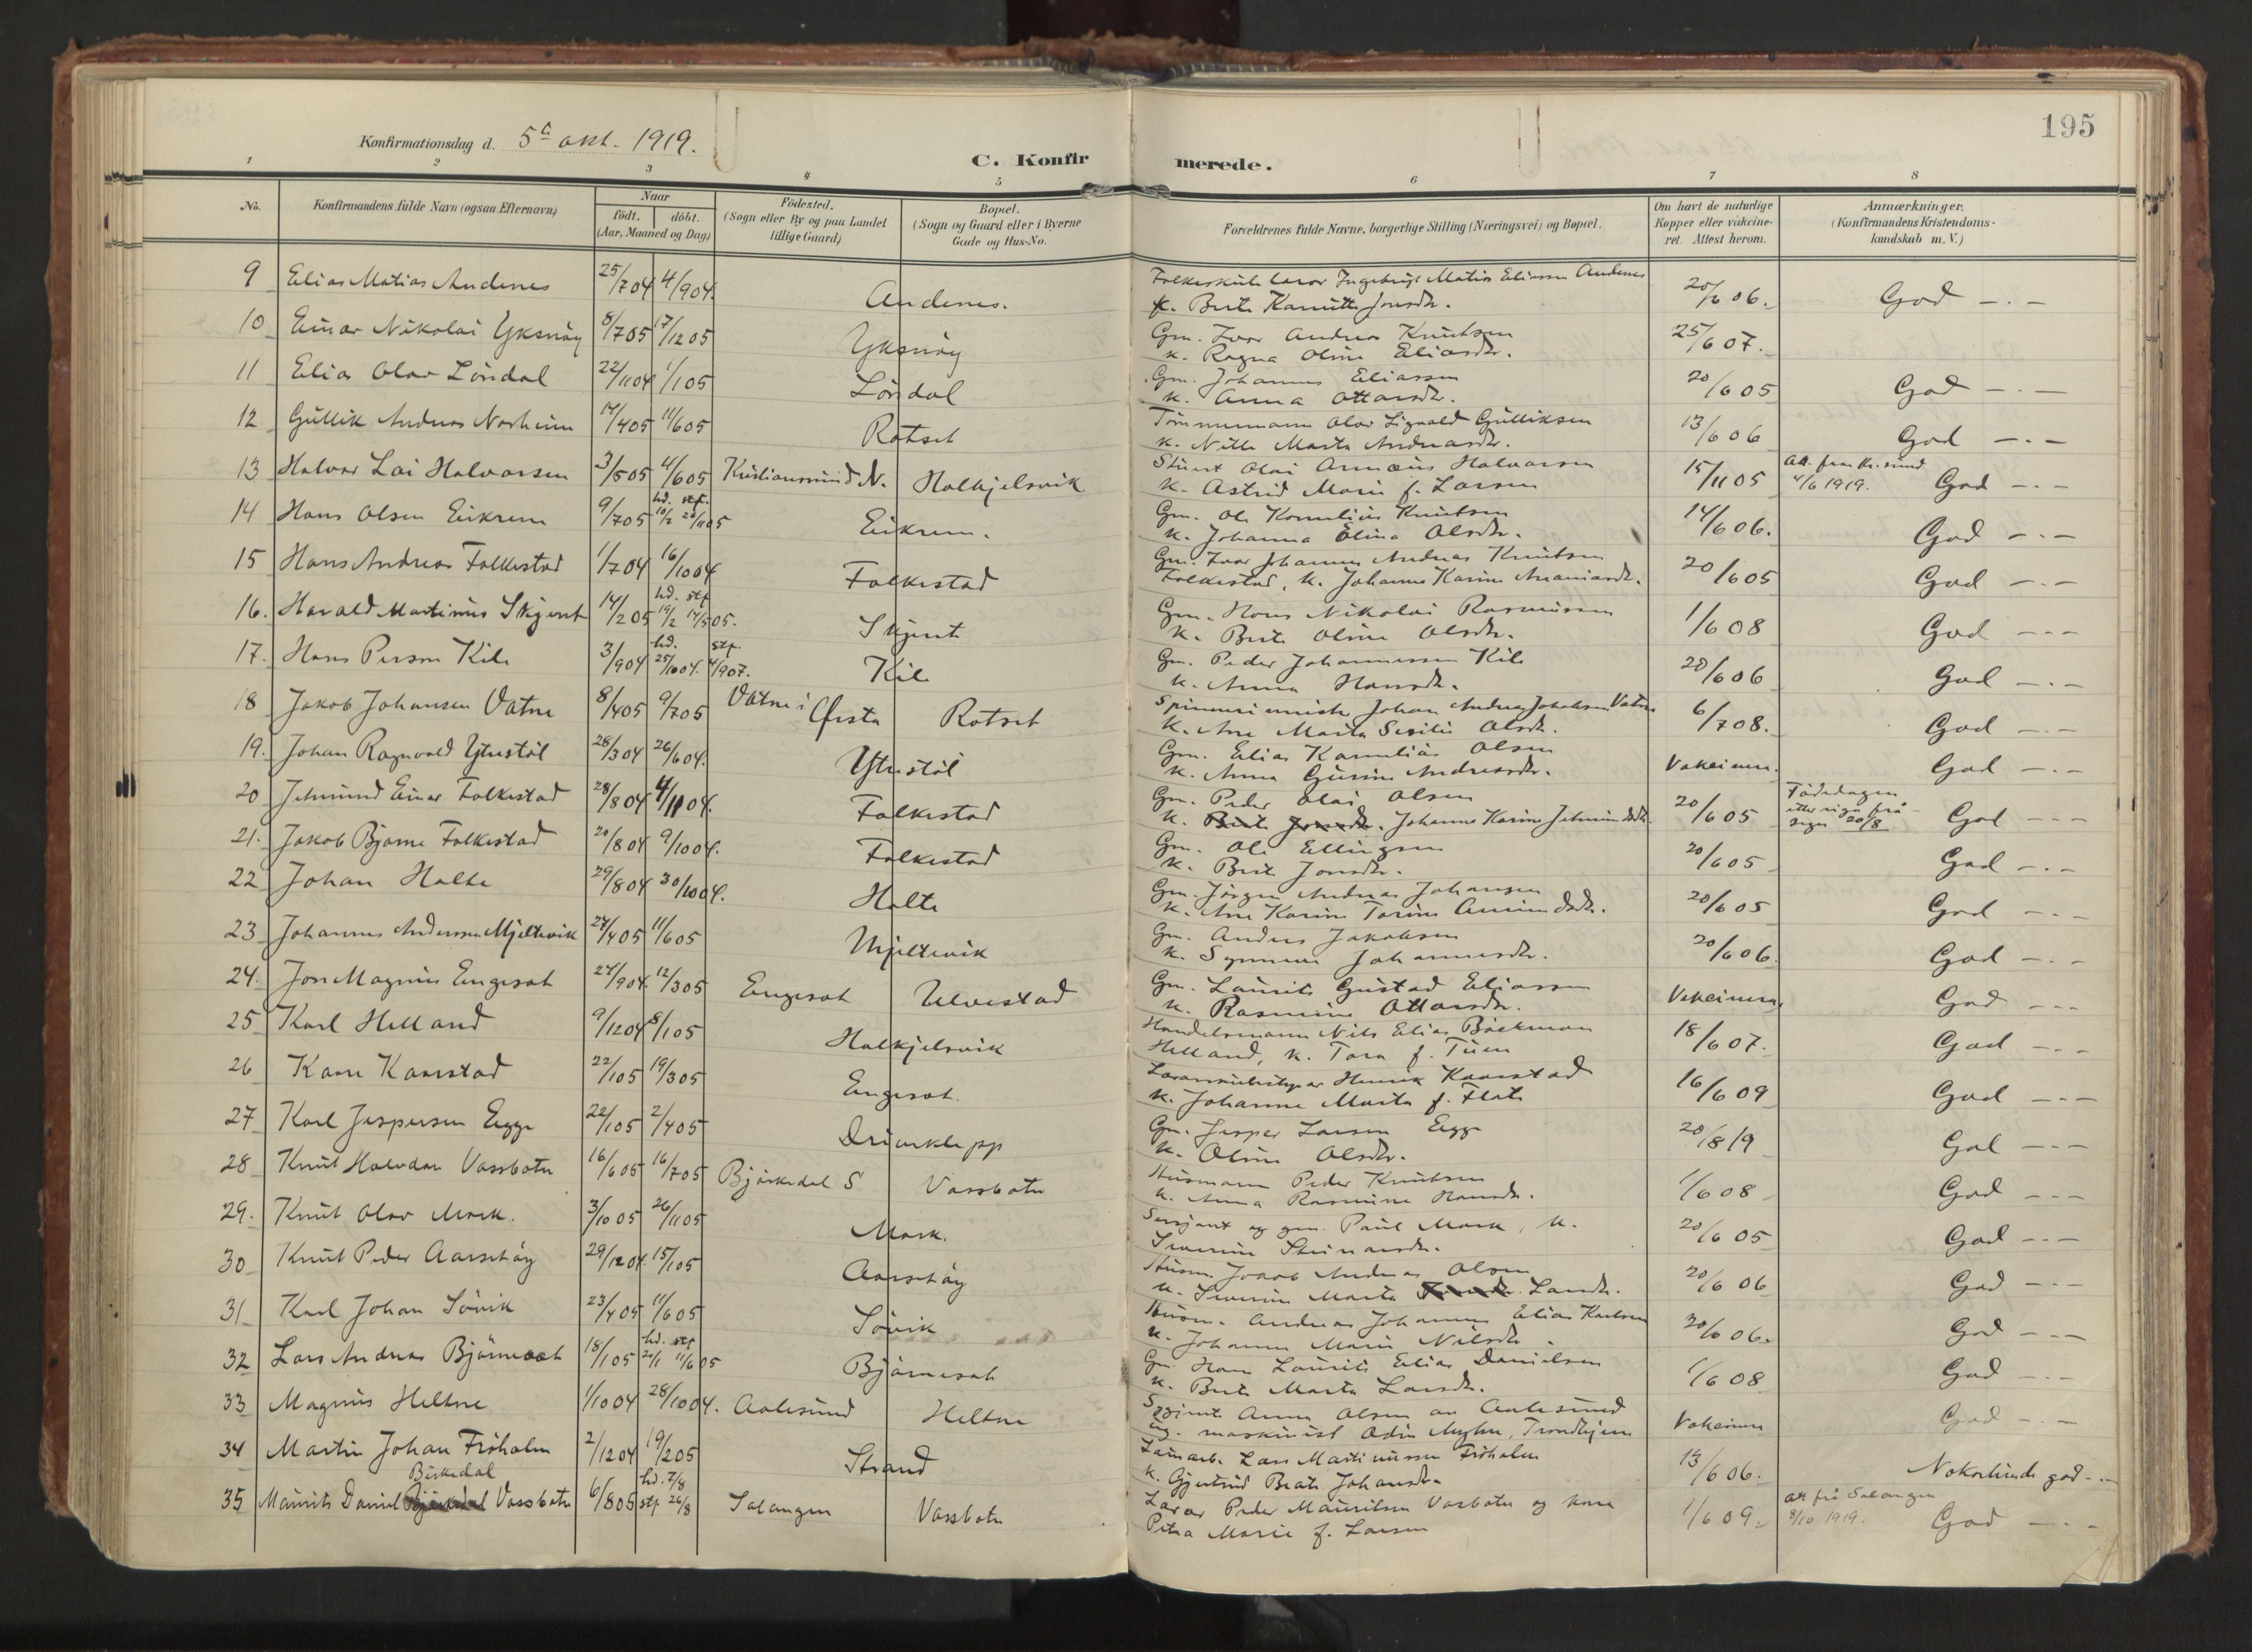 195
Konfirmationsdag d. 5te okt. 1919.
C. Konfirmerede.
1 2 3 4 5 6 7 8
No.
Konfirmandens fulde Navn (ogsaa Efternavn)
Naar
födt. döbt.
(Aar, Maaned og Dag)
Födested.
(Sogn eller By og paa Landet
tillige Gaard)
Bopæl.
(Sogn og Gaard eller i Byerne
Gade og Hus-No.
Forældrenes fulde Navne, borgerlige Stilling (Næringsvei) og Bopæl.
Om havt de naturlige
Kopper eller vakcine-
ret. Attest herom.
Anmærkninger.
(Konfirmandens Kristendoms-
kundskab m. V.)
9 Elias Matias Andenes 25/7 04 4/9 04. Andenes. Folkeskule lærar Ingebrigt Matias Eliassen Andenes 20/6 06. God -.-
k. Berte Jonsdtr.
10 Einar Nikolai Yksnöy 8/7 05 17/12 05 Yksnöy Gm. Ivar Andreas Knutsen 25/6 07.
k. Ragna Oline Eliasdtr.
11 Elias Olav Löndal 22/11 04 1/1 05 Löndal Gm. Johannes Eliassen 20/6 05 God -.-
k. Anna Ottarsdtr.
12 Gullik Andreas Norheim 14/4 05 11/6 05 Rotset Tömmermann Olav Sigvald Gulliksen 13/6 06 God -.-
k. Nille Marta Andreasdtr.
13 Halvar Lai Halvarsen 3/5 05 4/6 05 Kristiansund N. Halkjelsvik Stuert Olai Halvarsen 15/11 05 Att. fraa Kr.sund
4/6 1919. God -.-
k. Astrid Marie f. Larsen
14 Hans Olsen Eikrem 9/7 05 hd. stf. 10/7 26/11 05 Eikrem. Gm. Ole Kornelius Knutsen 14/6 06. God -.-
k. Johanna Elina Olsdtr.
15 Hans Andreas Folkestad 1/7 04 16/10 04 Folkestad Gm. Ivar Johannes Andreas Knutsen 20/6 05 God -.-
Folkestad, k. Johanne Karine Ananiasdtr.
16. Harald Martinus Skjervt 14/2 05 hd. stf 19/2 14/5 05. Gm. Hans Nikolai Rasmussen 1/6 08 God ---
k. Berte Oline Olsdtr.
17. Hans Persen Kile 3/9 04 hd. stf. 25/10 04. 4/9 07. Kile Gm. Peder Johannessen Kile 20/6 06 God -.-
k. Anna Hansdtr.
18 Jakob Johansen Vatne 8/4 05 9/7 05 Vatne i Örsta Rotset Spinnerimeister Johan Andreas Jakobsen Vatne 6/7 08. God -.-
k. Ane Marta Sesilie Olsdtr.
19. Johan Ragnvald Ytrestöl 28/3 04 26/6 04. Ytrestöl Gm. Elias Kornelius Olsen Vakcinera. God -.-
k. Anna Gurine Andreasdtr.
20 Jetmund Einar Folkestad 28/8 04 4/11 04. Folkestad Gm. Peder Olai Olsen 20/6 05 Födedagen
etter eiga frå-
segn 20/8 God ---
k. Johanne Karine Jetmundsdtr.
21. Jakob Bjarne Folkestad 20/8 04 9/10 04. Folkestad Gm. Ole Ellingsen 20/6 05 God -.-
k. Berte Jonsdtr.
22 Johan Holte 29/8 04 30/10 04. Holte Gm. Jörgen Andreas Johansen 20/6 05 God -.-
k. Ane Karine Torine Amundsdtr.
23 Johannes Anderssen Mjeltevik 24/4 05 11/6 05 Mjeltevik Gm. Anders Jakobsen 20/6 06. God -.-
k. Synneve Johannesdtr.
24. Jon Magnus Engeset 24/9 04. 12/3 05 Engeset Ulvestad Gm. Laurits Gustad Eliassen Vakcinera God ---
k. Rasmine Ottarsdtr.
25 Karl Helland 9/12 04 8/1 05 Halkjelsvik Handelsmann Nils Elias Böckman 18/6 07. God -.-
Helland, k. Tora f. Tuen
26 Kaare Kaarstad 22/1 05 19/3 05 Engeset. Lærarskulestyrar Henrik Kaarstad 16/6 09 God ---
k. Johanne Marta f. Flote
27 Karl Jespersen Egge 22/1 05 2/4 05 Driveklepp Gm. Jesper Larsen Egge 20/8 19 God ---
k. Oline Olsdtr.
28 Knut Halvdan Vassbotn 16/6 05 16/7 05 Björkedal S Vassbotn Husmann Peder Knutsen 1/6 08 God ---
k. Anna Rasmine Hansdtr.
29. Knut Olav Mork. 3/10 05 26/11 05 Mork. Sersjant og gm. Paul Mork, k. 20/6 05 God -.-
Severine Steinarsdtr.
30 Knut Peder Aarsetöy 29/12 04. 15/1 05 Aarsetöy Husm. Jakob Andreas Olsen 20/6 06 God -.-
k. Severine Marta Larsdtr.
31 Karl Johan Sövik 23/4 05 11/6 05 Sövik Husm. Andreas Johannes Elias Karlsen 20/6 06. God ---
k. Johanne Marie Nilsdtr.
32 Lars Andreas Björneset 18/1 05 hd. stf 21/1 11/6 05 Björneset Gm. Hans Laurits Elias Danielsen 1/6 08 God -.-
k. Berte Marta Larsdtr.
33 Magnus Heltne 1/10 04 28/10 04. Aalesund Heltne Anna Olsen av Aalesund Vakcinera God -.-
ug. maskinist Odin Myhre, Trondhjem
34 Martin Johan Fröholm 2/12 04 19/2 05 Strand Lars Martinussen Fröholm 13/6 06. Nokorlunde god -.-
k. Gjertrud Beate Johansdtr.
Birkedal
35 Maurits Daniel Vassbotn 6/8 05 hd. 7/8 stf 26/8 Salangen Vassbotn Lærar Peder Mauritsen Vasbotn og kona 1/6 09. Att frå Salangen
8/10 1919. God -.-
Petra Marie f. Larsen